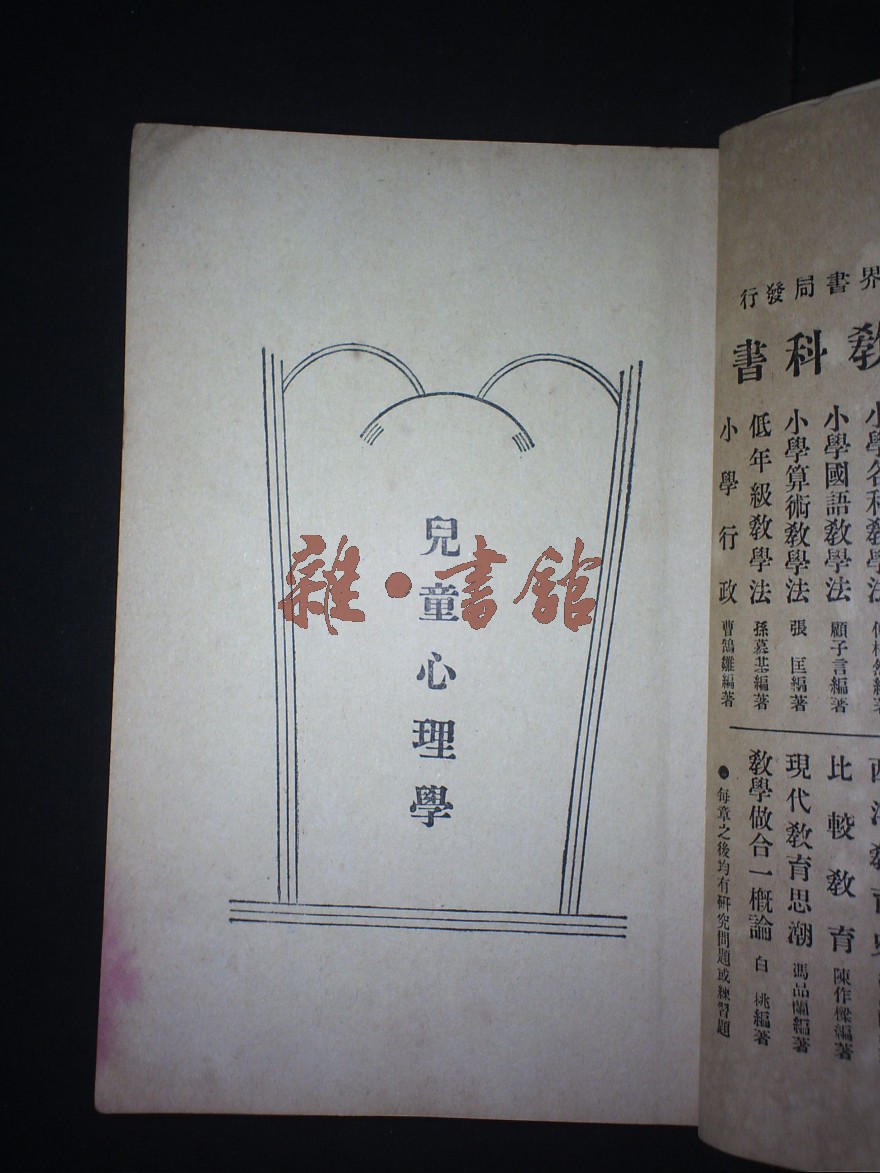 兒童心理學
雜·書館
界書局發行
教科書
小學國語教學法 顧子言編著
小學算術教學法 張匡編著
低年級教學法 孫慕基編著
小學行政 曹鵠雛編著
比較教育 陳作樑編著
現代教育思潮 馮品蘭編著
教學做合一概論 白桃編著
●每章之後均有研究問題或練習題